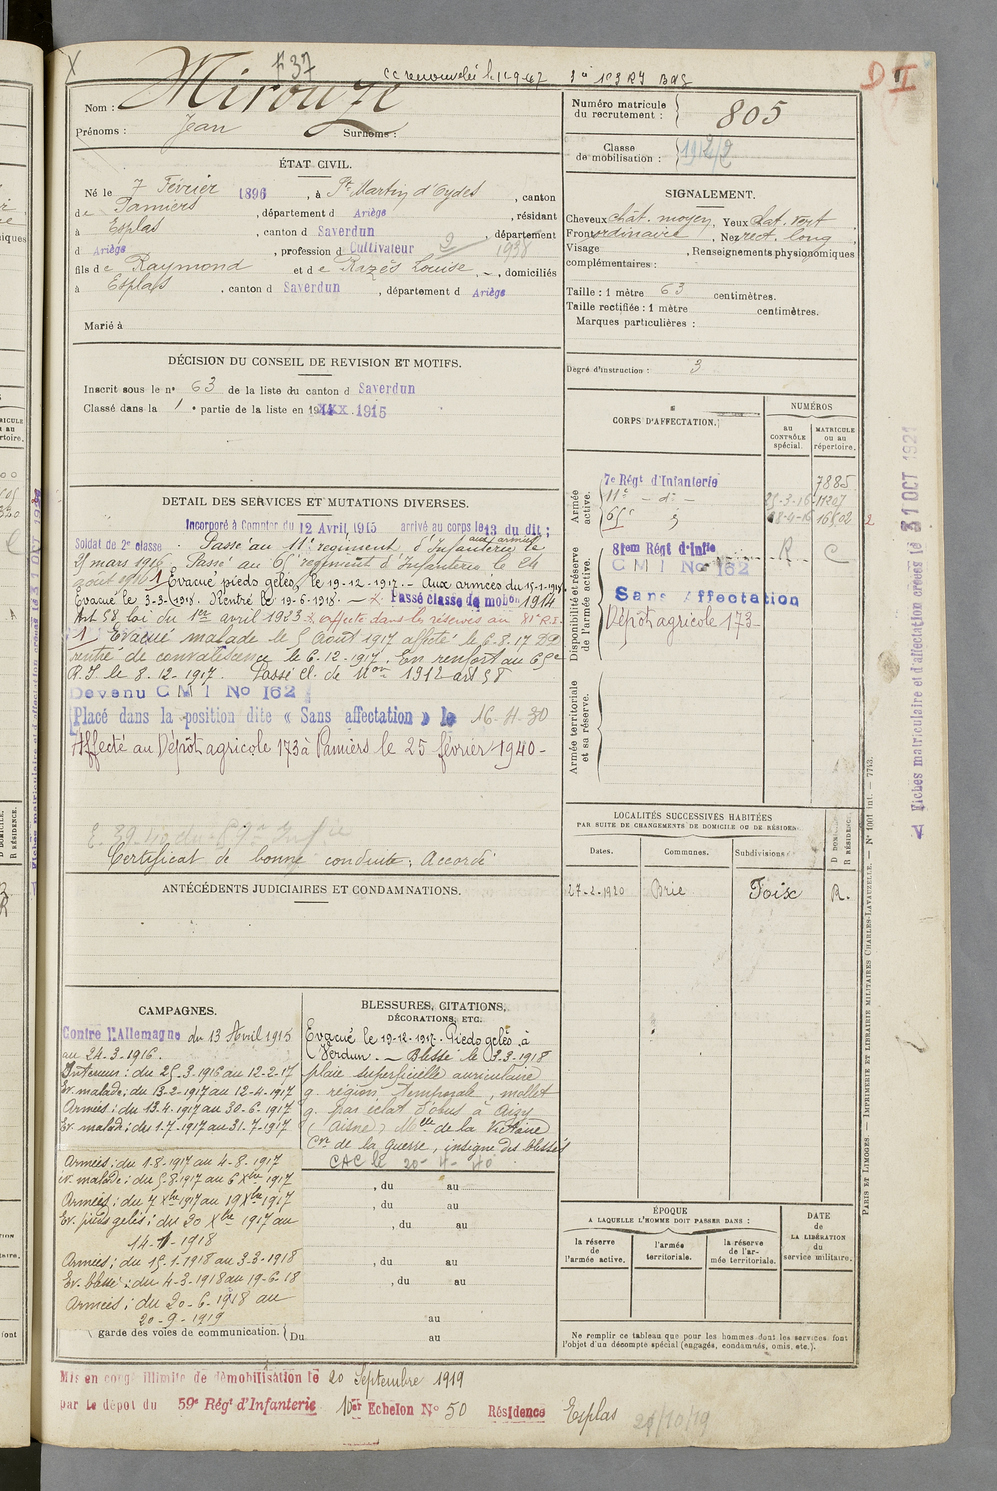 X
F37
CC renouvelée le 11-9-47
D I
Nom : Mirouze
Prénoms : Jean Surnoms :
Numéro matricule du recrutement : 805
Classe de mobilisation : 1912/2
ÉTAT CIVIL.
Né le 7 Février 1896, à St Martin d'Oydes, canton
de Pamiers, département d Ariège, résidant
à Esplas, canton d Saverdun, département
d Ariège, profession d Cultivateur 2 1938
fils de Raymond et de Razès Louise, domiciliés
à Esplas, canton d Saverdun, département d Ariège
Marié à
SIGNALEMENT.
Cheveux chât. moyen, Yeux chat. vert
Front ordinaire, Nez rect. long
Visage , Renseignements physionomiques
complémentaires :
Taille : 1 mètre 63 centimètres.
Taille rectifiée : 1 mètre centimètres.
Marques particulières :
Degré d'instruction : 3
DÉCISION DU CONSEIL DE REVISION ET MOTIFS.
Inscrit sous le n° 63 de la liste du canton d Saverdun
Classé dans la 1e partie de la liste en 1915
DETAIL DES SERVICES ET MUTATIONS DIVERSES.
Incorporé à Compter du 12 Avril 1915 arrivé au corps le 13 du dit ;
Soldat de 2e classe Passé au 11e régiment d'Infanterie aux armées le
25 mars 1916. Passé au 65e régiment d'Infanterie le 24
août 1916 1 Évacué pieds gelés le 19-12-1917. - Aux armées du 15-1-1918
Évacué le 3-3-1918. Rentré le 19-6-1918. - X Passé classe de mobon 1914
Art 58 loi du 1er avril 1923 X affecté dans les réserves au 81e R.I.
1 Évacué malade le 5 août 1917
rentré de convalescence le 6-12-1917. En renfort au 65e
R.I. le 8-12-1917. Passé cl. de mon 1912 art 58
Devenu C M I No 162
Placé dans la position dite « Sans affectation » le 16-4-30
Affecté au Dépôt agricole 173 à Pamiers le 25 février 1940-
Certificat de bonne conduite : Accordé
CORPS D'AFFECTATION.
NUMÉROS
au CONTRÔLE spécial.
MATRICULE ou au répertoire.
Armée active.
7e Régt d'Infanterie 7885
11e - d° - 25-3-16 11207
65e
Disponibilité et réserve de l'armée active.
81em Régt d'Infie R C
C M I No 162
Sans Affectation
Dépôt agricole 173-
Armée territoriale et sa réserve.
ANTÉCÉDENTS JUDICIAIRES ET CONDAMNATIONS.
LOCALITÉS SUCCESSIVES HABITÉES
PAR SUITE DE CHANGEMENTS DE DOMICILE OU DE RÉSIDENCE
Dates. Communes. Subdivisions.
27-2-1920 Brie Foix R.
CAMPAGNES.
Contre l'Allemagne du 13 Avril 1915
au 24-3-1916.
Intérieur : du 25-3-1916 au 12-2-17
Ev. malade : du 13-2-1917 au 12-4-1917
Armées : du 13-4-1917 au 30-6-1917
Ev. malade : du 1-7-1917 au 31-7-1917
Armées : du 1-8-1917 au 4-8-1917
ev. malade : du 5-8-1917 au 6 Xbre 1917
Armées : du 7 Xbre 1917 au 19 Xbre 1917
Ev. pieds gelés : du 20 Xbre 1917 au
14-1-1918
Armées : du 15-1-1918 au 3-3-1918
Ev. blessé : du 4-3-1918 au 19-6-18
Armées : du 20-6-1918 au
20-9-1919
garde des voies de communication. Du au
BLESSURES, CITATIONS,
DÉCORATIONS, ETC.
Evacué le 19-12-1917. Pieds gelés à
Verdun. - Blessé le 3-3-1918
plaie superficielle auriculaire
g. région temporale, mollet
g. par éclat d'obus à Aizy
(Aisne) Mlle de la Victoire
Cre de la guerre, insigne des blessés
CAC le 20-4-40
, du au
, du au
, du au
, du au
, du au
au
ÉPOQUE
A LAQUELLE L'HOMME DOIT PASSER DANS :
la réserve de l'armée active.
l'armée territoriale.
la réserve de l'armée territoriale.
DATE de LA LIBÉRATION du service militaire.
Ne remplir ce tableau que pour les hommes dont les services font
l'objet d'un décompte spécial (engagés, condamnés, omis, etc.).
Mis en congé illimité de démobilisation le 20 Septembre 1919
par le dépot du 59e Régt d'Infanterie 10er Echelon No 50 Résidence Esplas 24/10/19
Fiches matriculaire et d'affectation créées le 31 OCT 1921
PARIS ET LIMOGES. — IMPRIMERIE ET LIBRAIRIE MILITAIRES CHARLES-LAVAUZELLE. — N° 1001 int. — 7743.